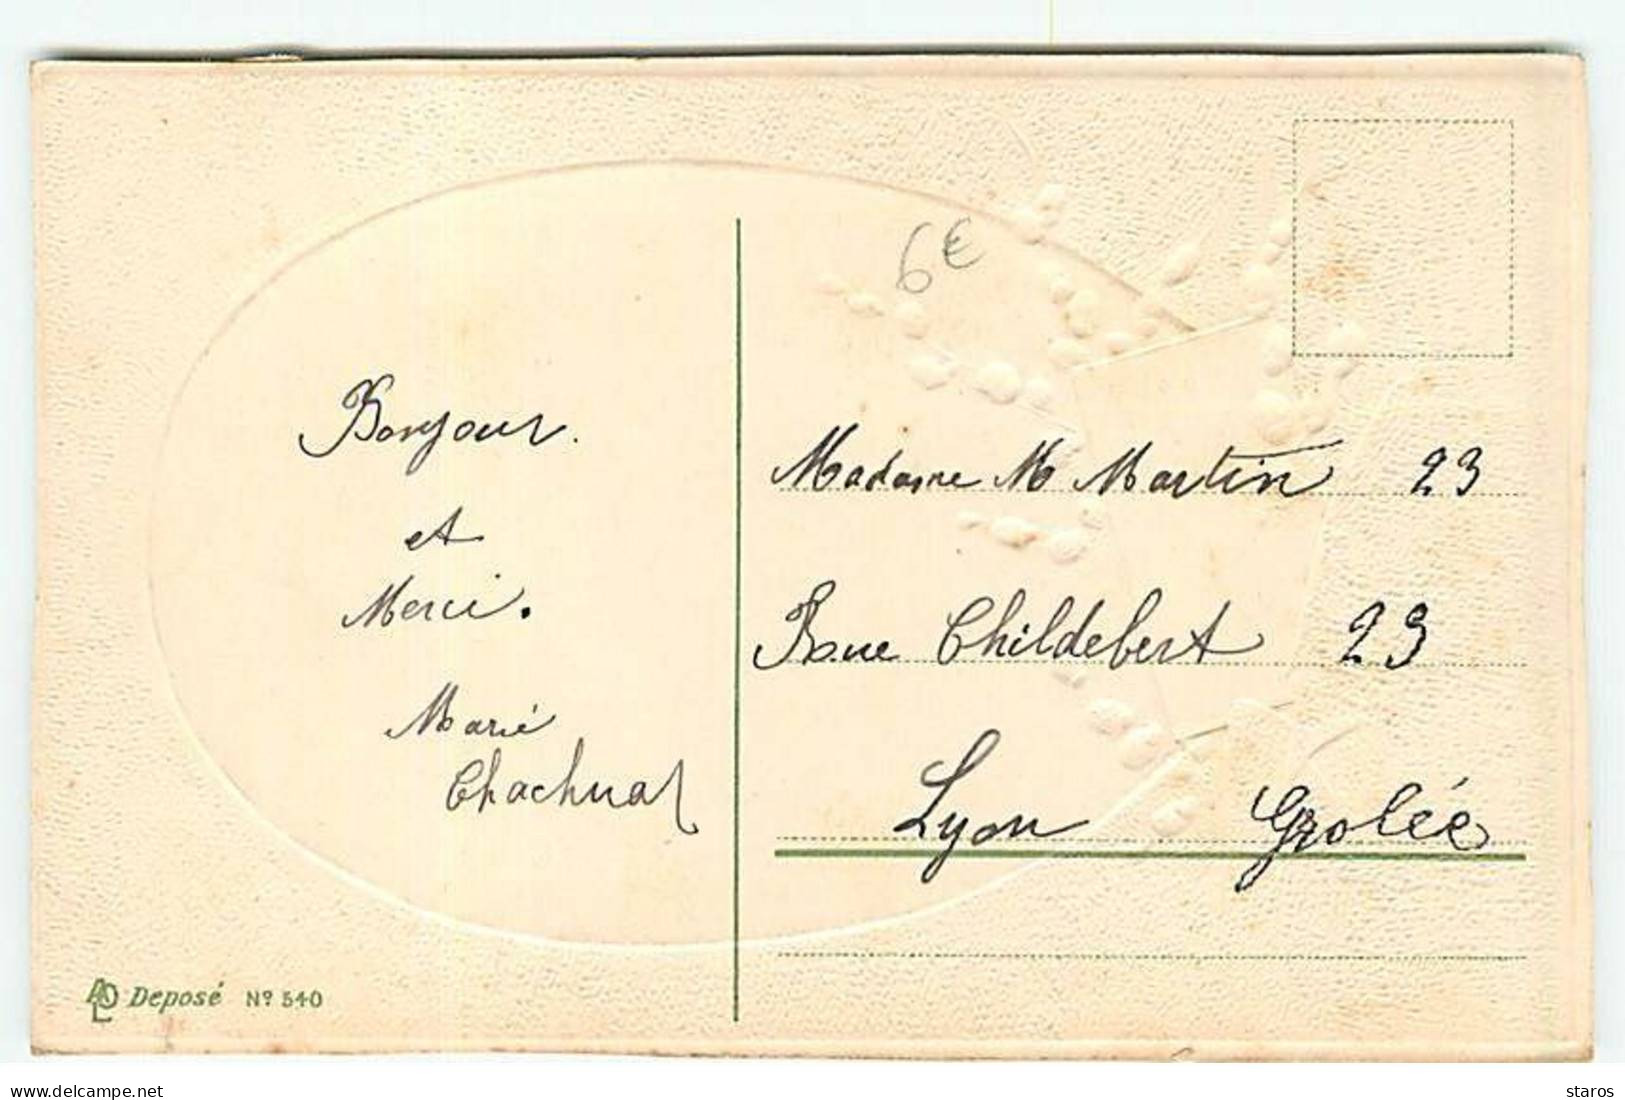 6€
Bonjour.
et
Merci.
Marie
Madame M Martin 23
Rue Childebert 23
Lyon Grolée
ADL Deposé Nº 540
www.delcampe.net
staros